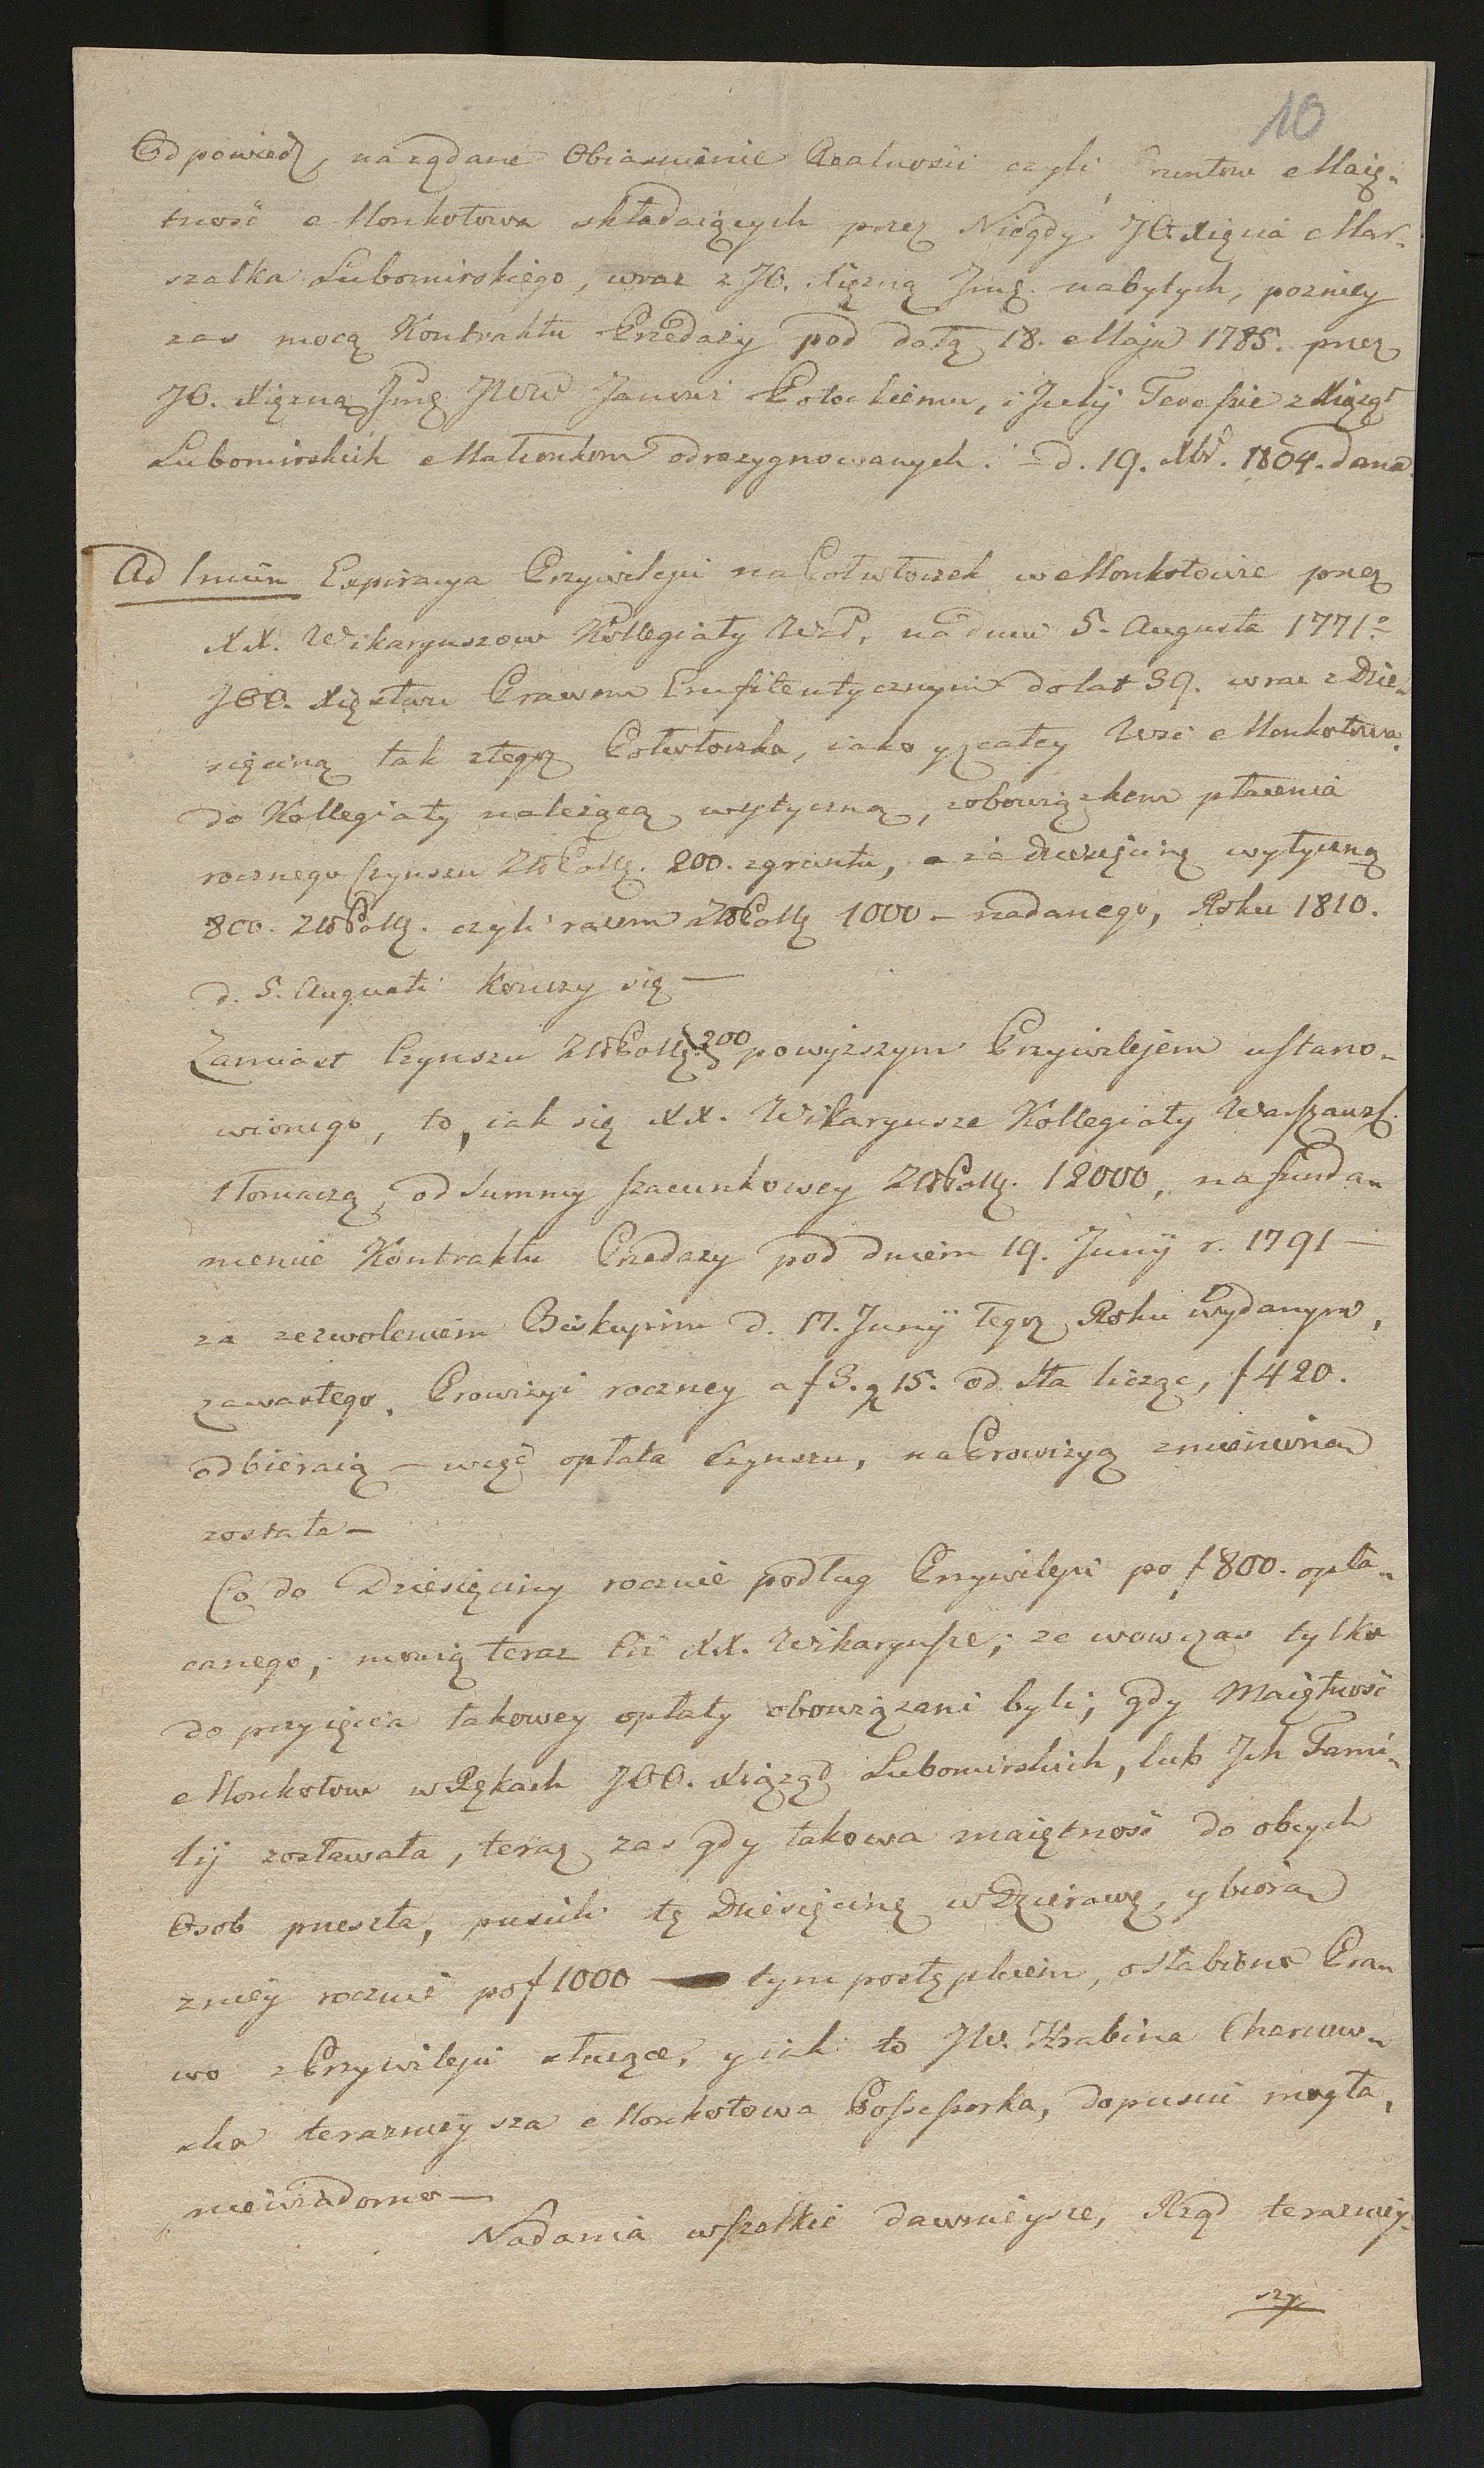 10
Odpowiedz, na żądane Obiasnienie Realnosci czyli Gruntow Maię-
tność Monkotowa składaiących przez Niegdy JO. Xięcia Mar-
szałka Lubomirskiego, wraz z JO. Xiężną Jmę nabytych, pozniey
zas mocą Kontraktu Przedaży pod datą 18. Maja 1785. przez
JO. Xiężną Jmę JWW Janowi Potockiemu, i Julij Teressie z Xiążąt
Lubomirskich Małżonkom odrezygnowanych. - d. 19. Xbr. 1804. dana.
Ad 1mum Expiracya Przywileju na Połwłoczek w Monkotowie przez
XX. Wikaryuszow Kollegiaty W. na dniu 5. Augusta 1771o
JOO. Xięstwu Prawem Emfiteutycznym do lat 39. wraz z Dzie-
sięciną tak z tegoż Połwłoczka, iako y z całey Wsi Monkotowa
do Kollegiaty należącą wytyczną, z obowiązkiem płacenia
rocznego Czynszu Zł Polł. 200. z gruntu, a za dziesięcinę wytyczną
800. Zł Polł. czyli razem Zł Polł 1000 - nadanego, Roku 1810.
d. 5. Augusti konczy się —
Zamiast Czynszu Zł Polł. 200 powyższym Przywilejem ustano-
wionego, to, iak się XX. Wikaryusze Kollegiaty Warszaws.
tłomaczą, od Summy szacunkowey Zł Polł. 12000, na funda-
mencie Kontraktu Przedaży pod dniem 19. Junij r. 1791 —
za zezwoleniem Biskupim d. 17. Junij tegoż Roku wydanym,
zawartego, Prowizyi roczney a f 3. g 15. od Sta licząc, f 420.
odbieraią — więc opłata Czynszu, na Prowizyą zmieniona
została —
Co do Dziesięciny rocznie podług Przywileju po f 800. opła-
canego, mowią teraz Ciż XX. Wikaryusze; że wowczas tylko
do przyięcia takowey opłaty obowiązani byli; gdy Maiętność
Monkotow w Rękach JOO. Xiążąt Lubomirskich, lub Jch Fami-
lij zostawała, teraz zas gdy takowa maiętność do obcych
Osob przeszła, puscili tę Dziesięcinę w Dzierżawę, y biorą
z niey rocznie po f 1000 — tym postępkiem, osłabione Pra-
wo z Przywileju służące, y iak to JW. Hrabina
ska teraznieysza Monkotowa Possessorka, dopuscić mogła,
niewiadomo —
Nadania wszelkie dawnieysze, Rząd teraznicy-
szy